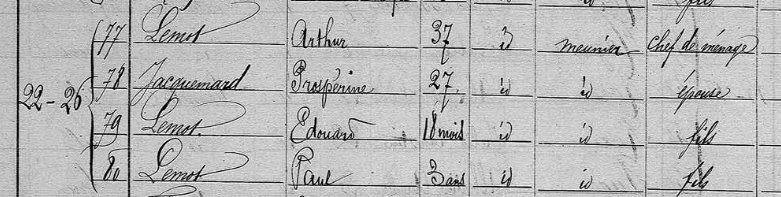 77 Lemot Arthur 37 id meunier chef de ménage
22-26 78 Jacquemard Prosperine 27 id id épouse
79 Lemot Edouard 18 mois id id fils
80 Lemot Paul 3 ans id id fils